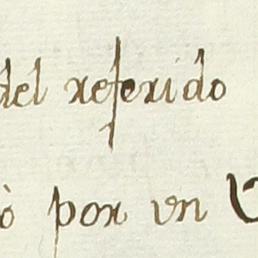 del referido
ò por un